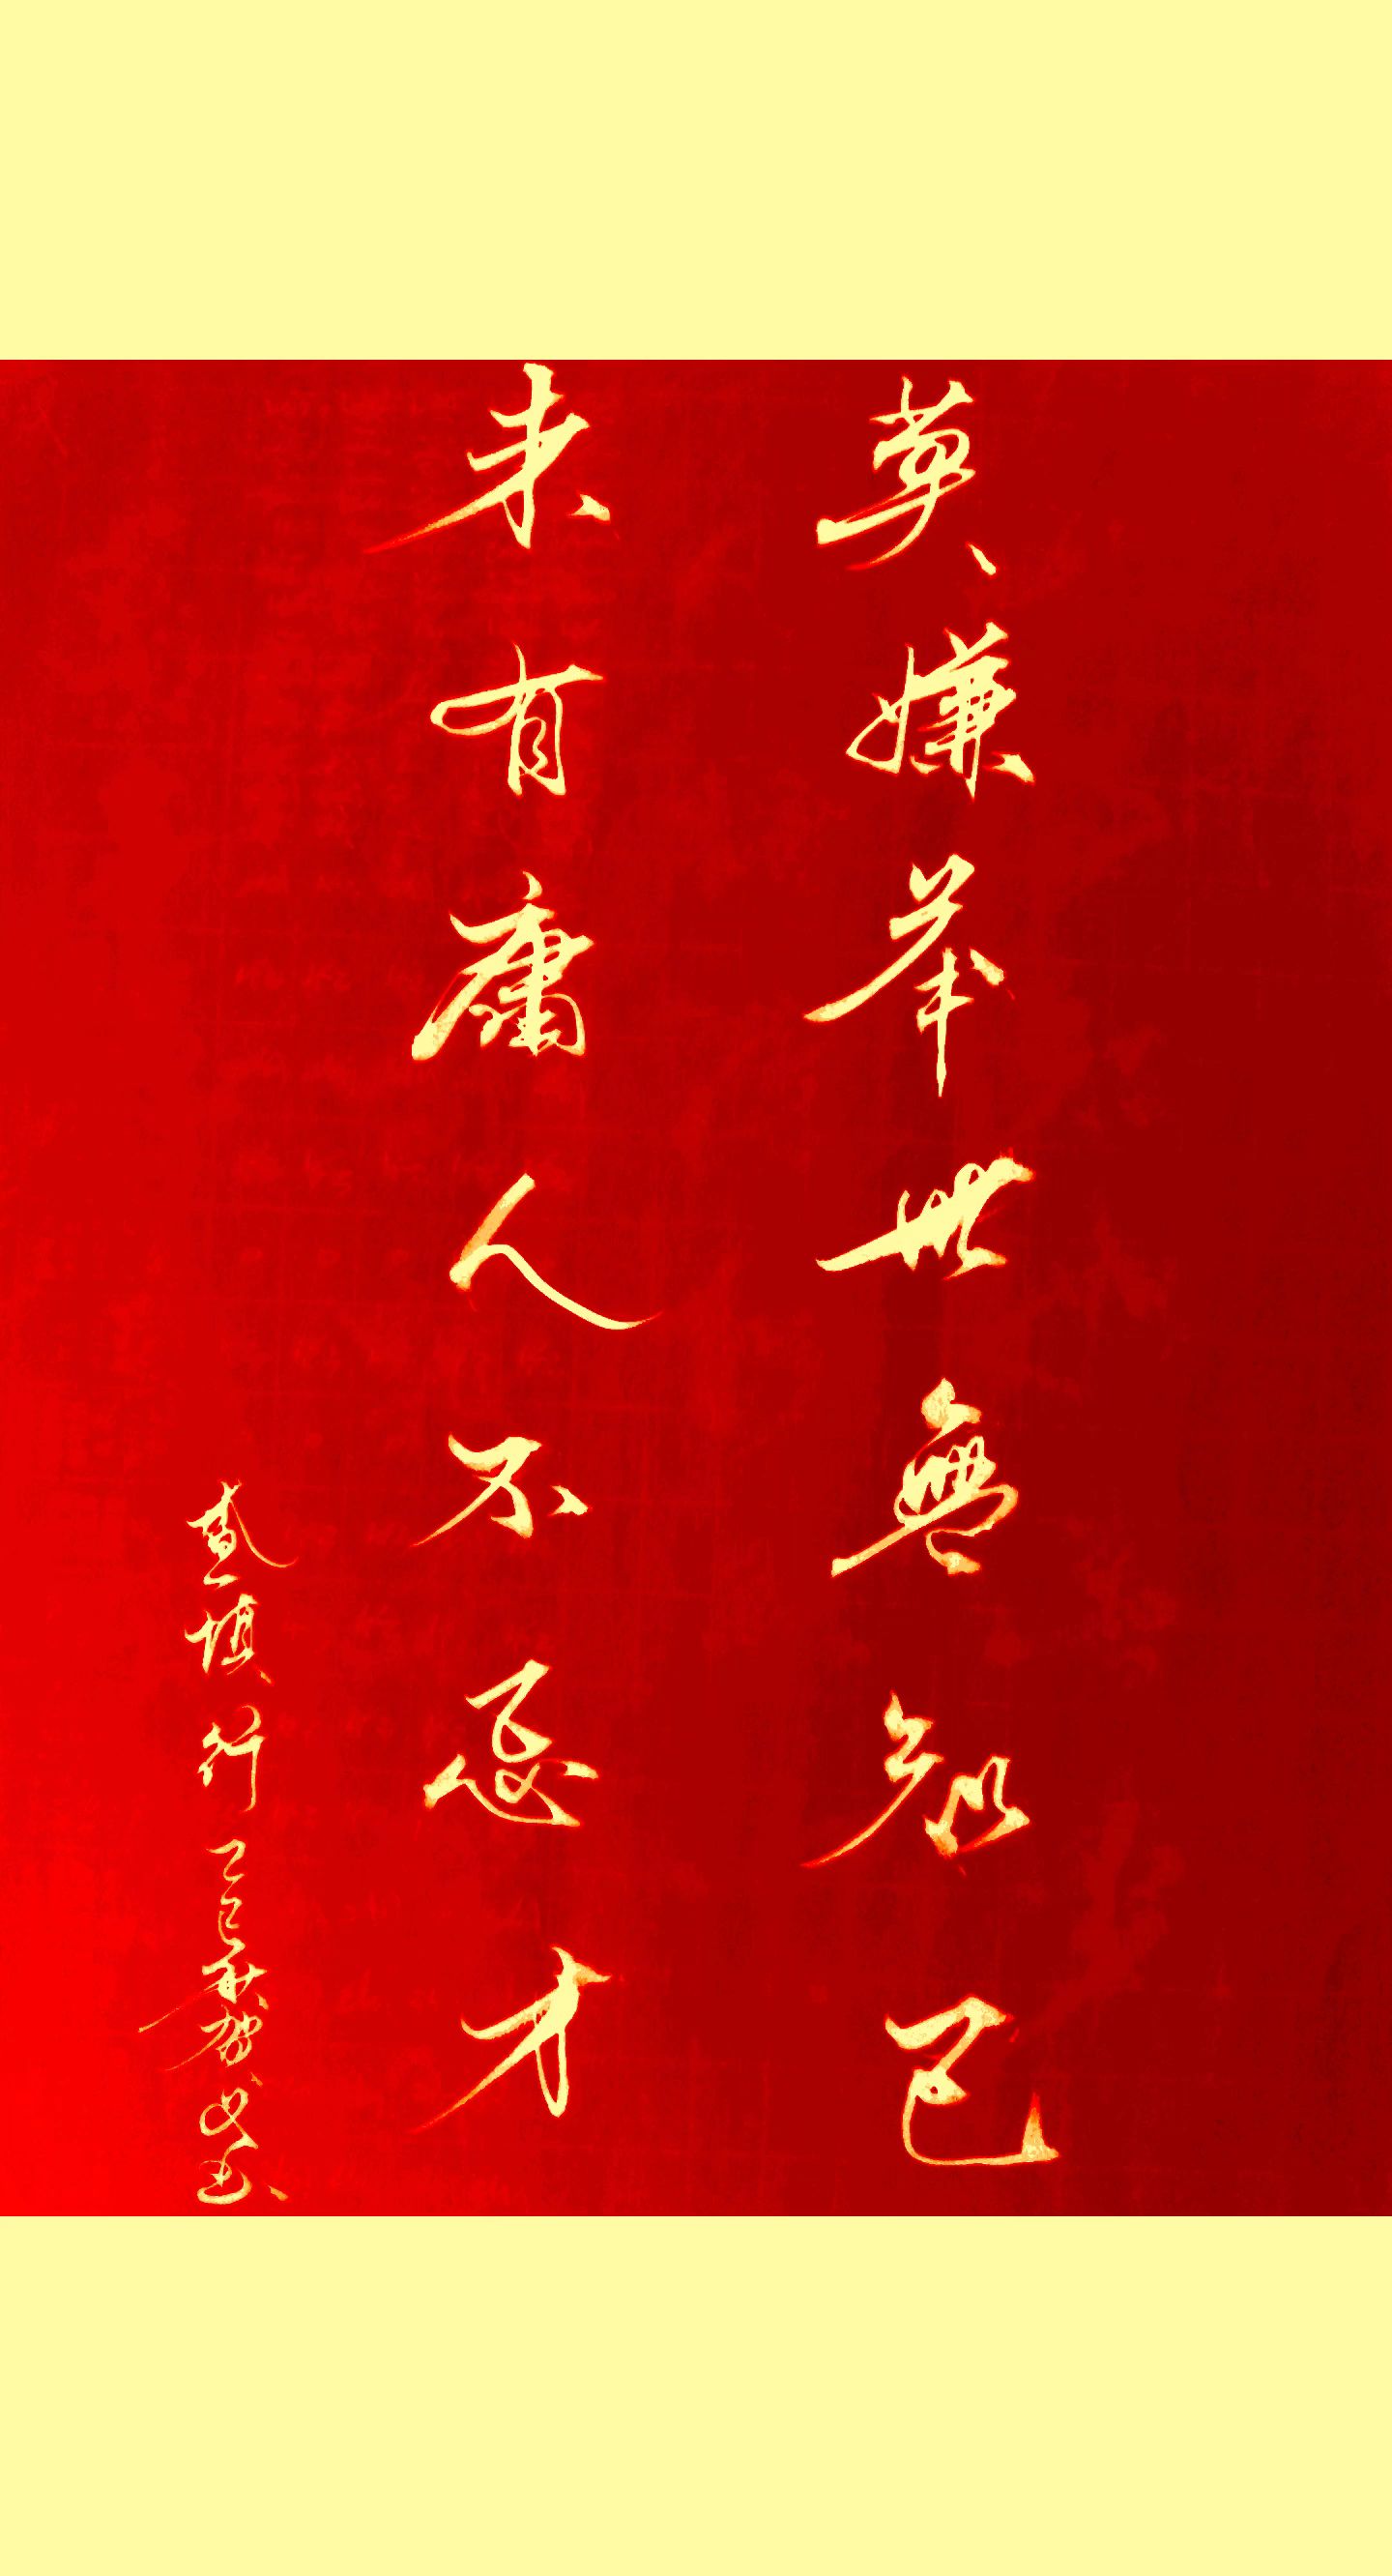 莫嫌举世無知已
未有庸人不忌才
乙巳秋